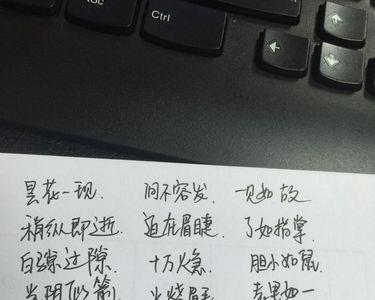 Ctrl
昙花一现. 间不容发. 一见如故
稍纵即逝. 迫在眉睫. 了如指掌.
白驹过隙. 十万火急. 胆小如鼠.
光阴似箭 火烧眉毛 表里如一